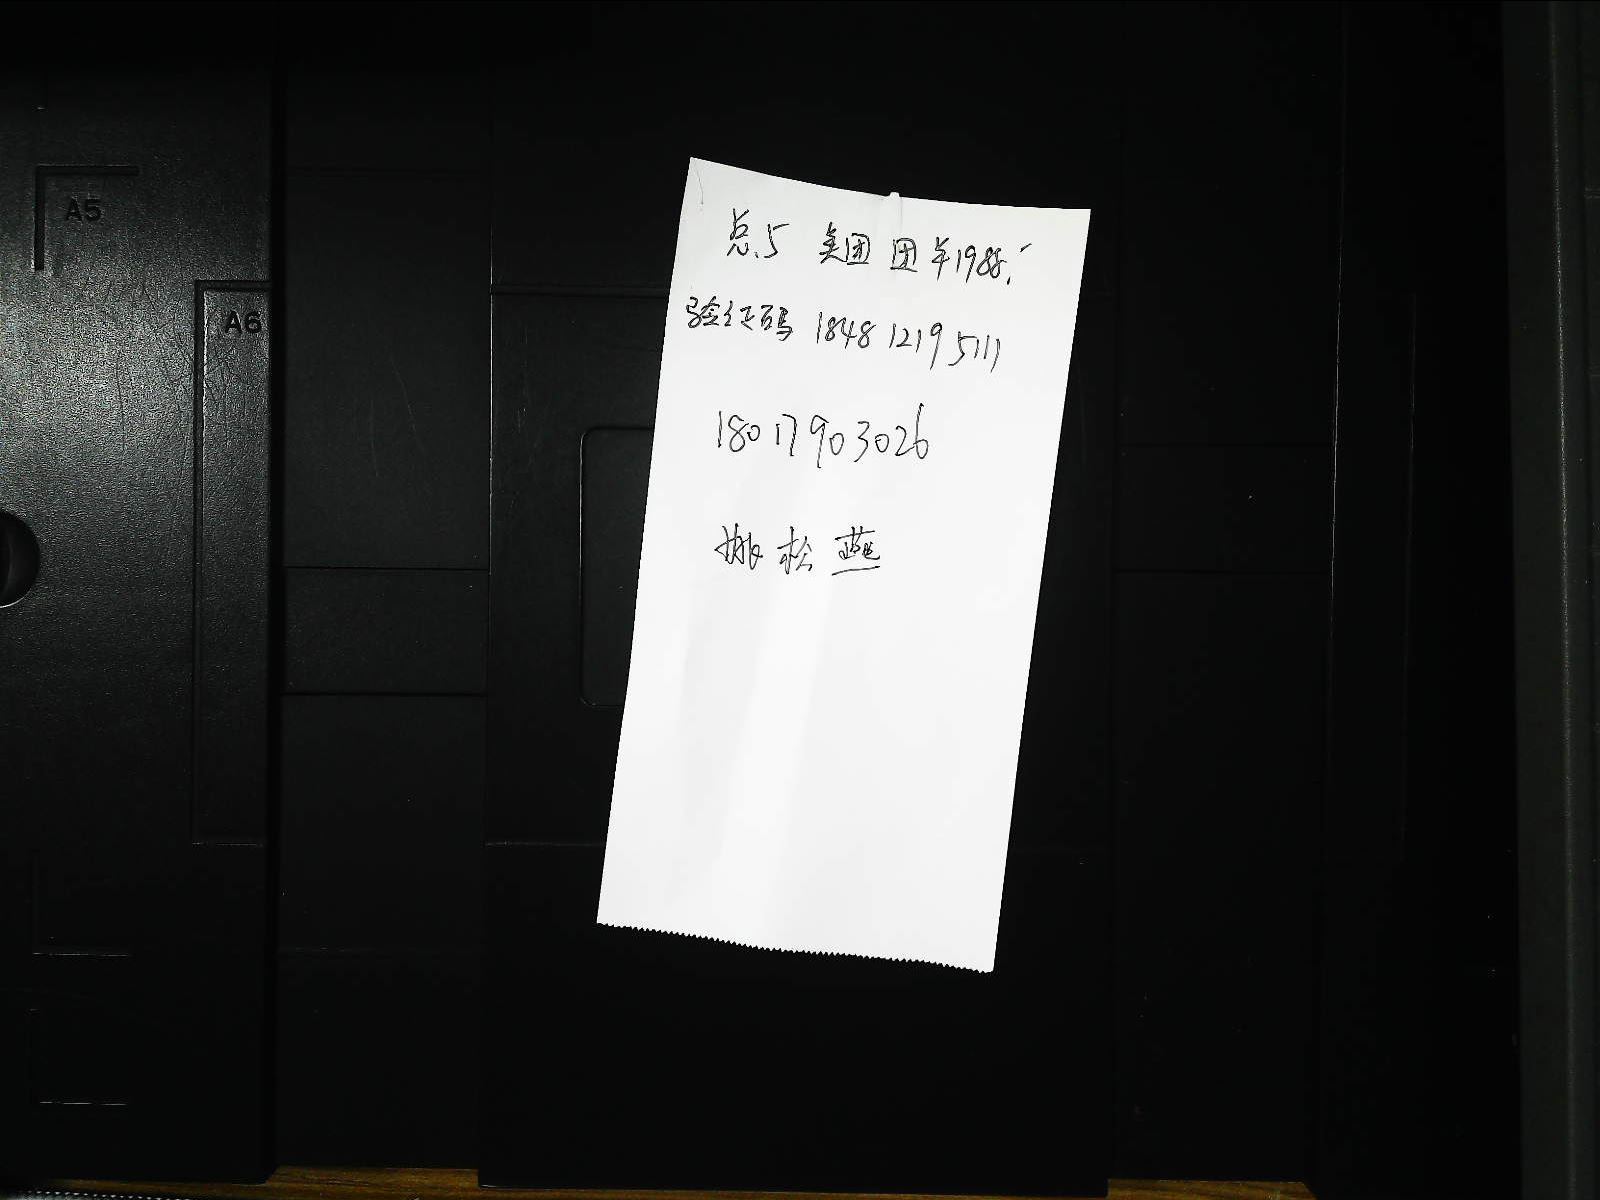 A5
A6
总.5 美团 团单1988.-
验证码 1848 1219 5111
18017903026
姚松燕